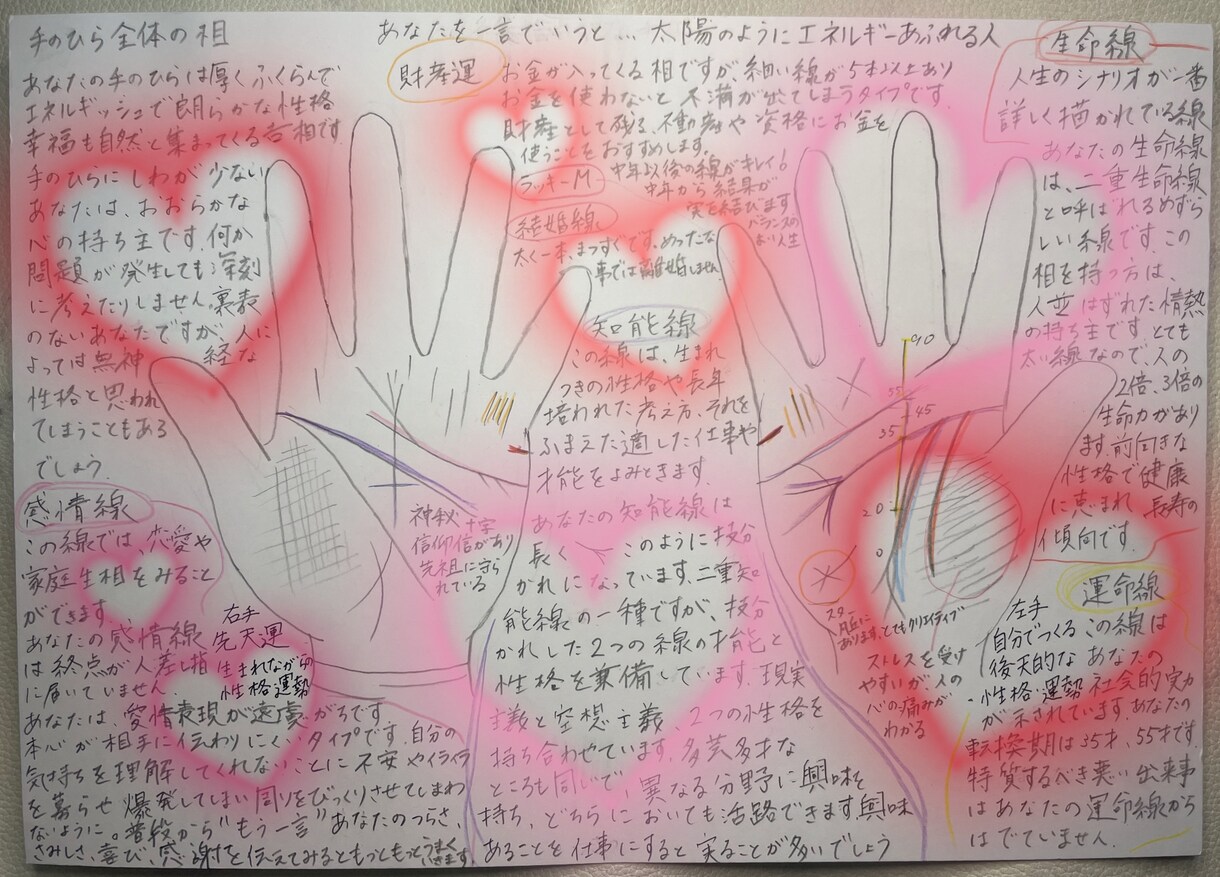 手のひら全体の相
あなたの手のひらは厚くふくらんで
エネルギッシュで朗らかな性格
幸福も自然と集まってくる吉相です
手のひらにしわが少ない
あなたは、おおらかな
心の持ち主です。何か
問題が発生しても深刻
に考えたりしません。裏表
のないあなたですが、人に
よっては無神経な
性格と思われ
てしまうこともある
でしょう
あなたを一言でいうと… 太陽のようにエネルギーあふれる人
財産運
お金が入ってくる相ですが、細い線が5本以上あり
お金を使わないと不満が出てしまうタイプです。
財産として残る、不動産や資格にお金を
使うことをおすすめします。
ラッキーM
中年以後の線がキレイ!
中年から結果が
実を結びます
バランスの
よい人生
結婚線
太く一本、まっすぐです。めったな
事では離婚しません
知能線
この線は、生まれ
つきの性格や長年
培われた考え方、それを
ふまえた適した仕事や
才能をよみときます。
あなたの知能線は
長く このように枝分
かれになっています。二重知
能線の一種ですが、枝分
かれした2つの線の才能と
性格を兼備しています。現実
主義と空想主義、2つの性格を
持ち合わせています。多芸多才な
ところも同じで、異なる分野に興味を
持ち、どちらにおいても活路できます興味
あることを仕事にすると実ることが多いでしょう
生命線
人生のシナリオが一番
詳しく描かれている線
あなたの生命線
は、二重生命線
と呼ばれるめずら
しい線です。この
相を持つ方は、
人並はずれた情熱
の持ち主です とても
太い線なので、人の
2倍、3倍の
生命力があり
ます。前向きな
性格で健康
に恵まれ 長寿の
傾向です。
90
55
45
35
20
0
感情線
この線では、恋愛や
家庭生相をみること
ができます。
あなたの感情線
は終点が人差し指
に届いていません。
あなたは、愛情表現が遠慮がちです
本心が相手に伝わりにくいタイプです。自分の
気持ちを理解してくれないことに不安やイライラ
を募らせ 爆発してしまい周りをびっくりさせてしまわ
ないように。普段から"もう一言"あなたのつらさ、
さみしさ、喜び、感謝を伝えてみるともっともっとうまく
いきます
右手
先天運
生まれながらの
性格運勢
神秘十字
信仰信があり
先祖に守ら
れている
スター
月丘に
あります。とてもクリエイティブ
ストレスを受け
やすいが、人の
心の痛みが
わかる
左手
自分でつくる
後天的な
・性格・運勢
運命線
この線は
あなたの
社会的実力
が示されています。あなたの
転換期は35才、55才です
特質するべき悪い出来事
はあなたの運命線から
はでていません。